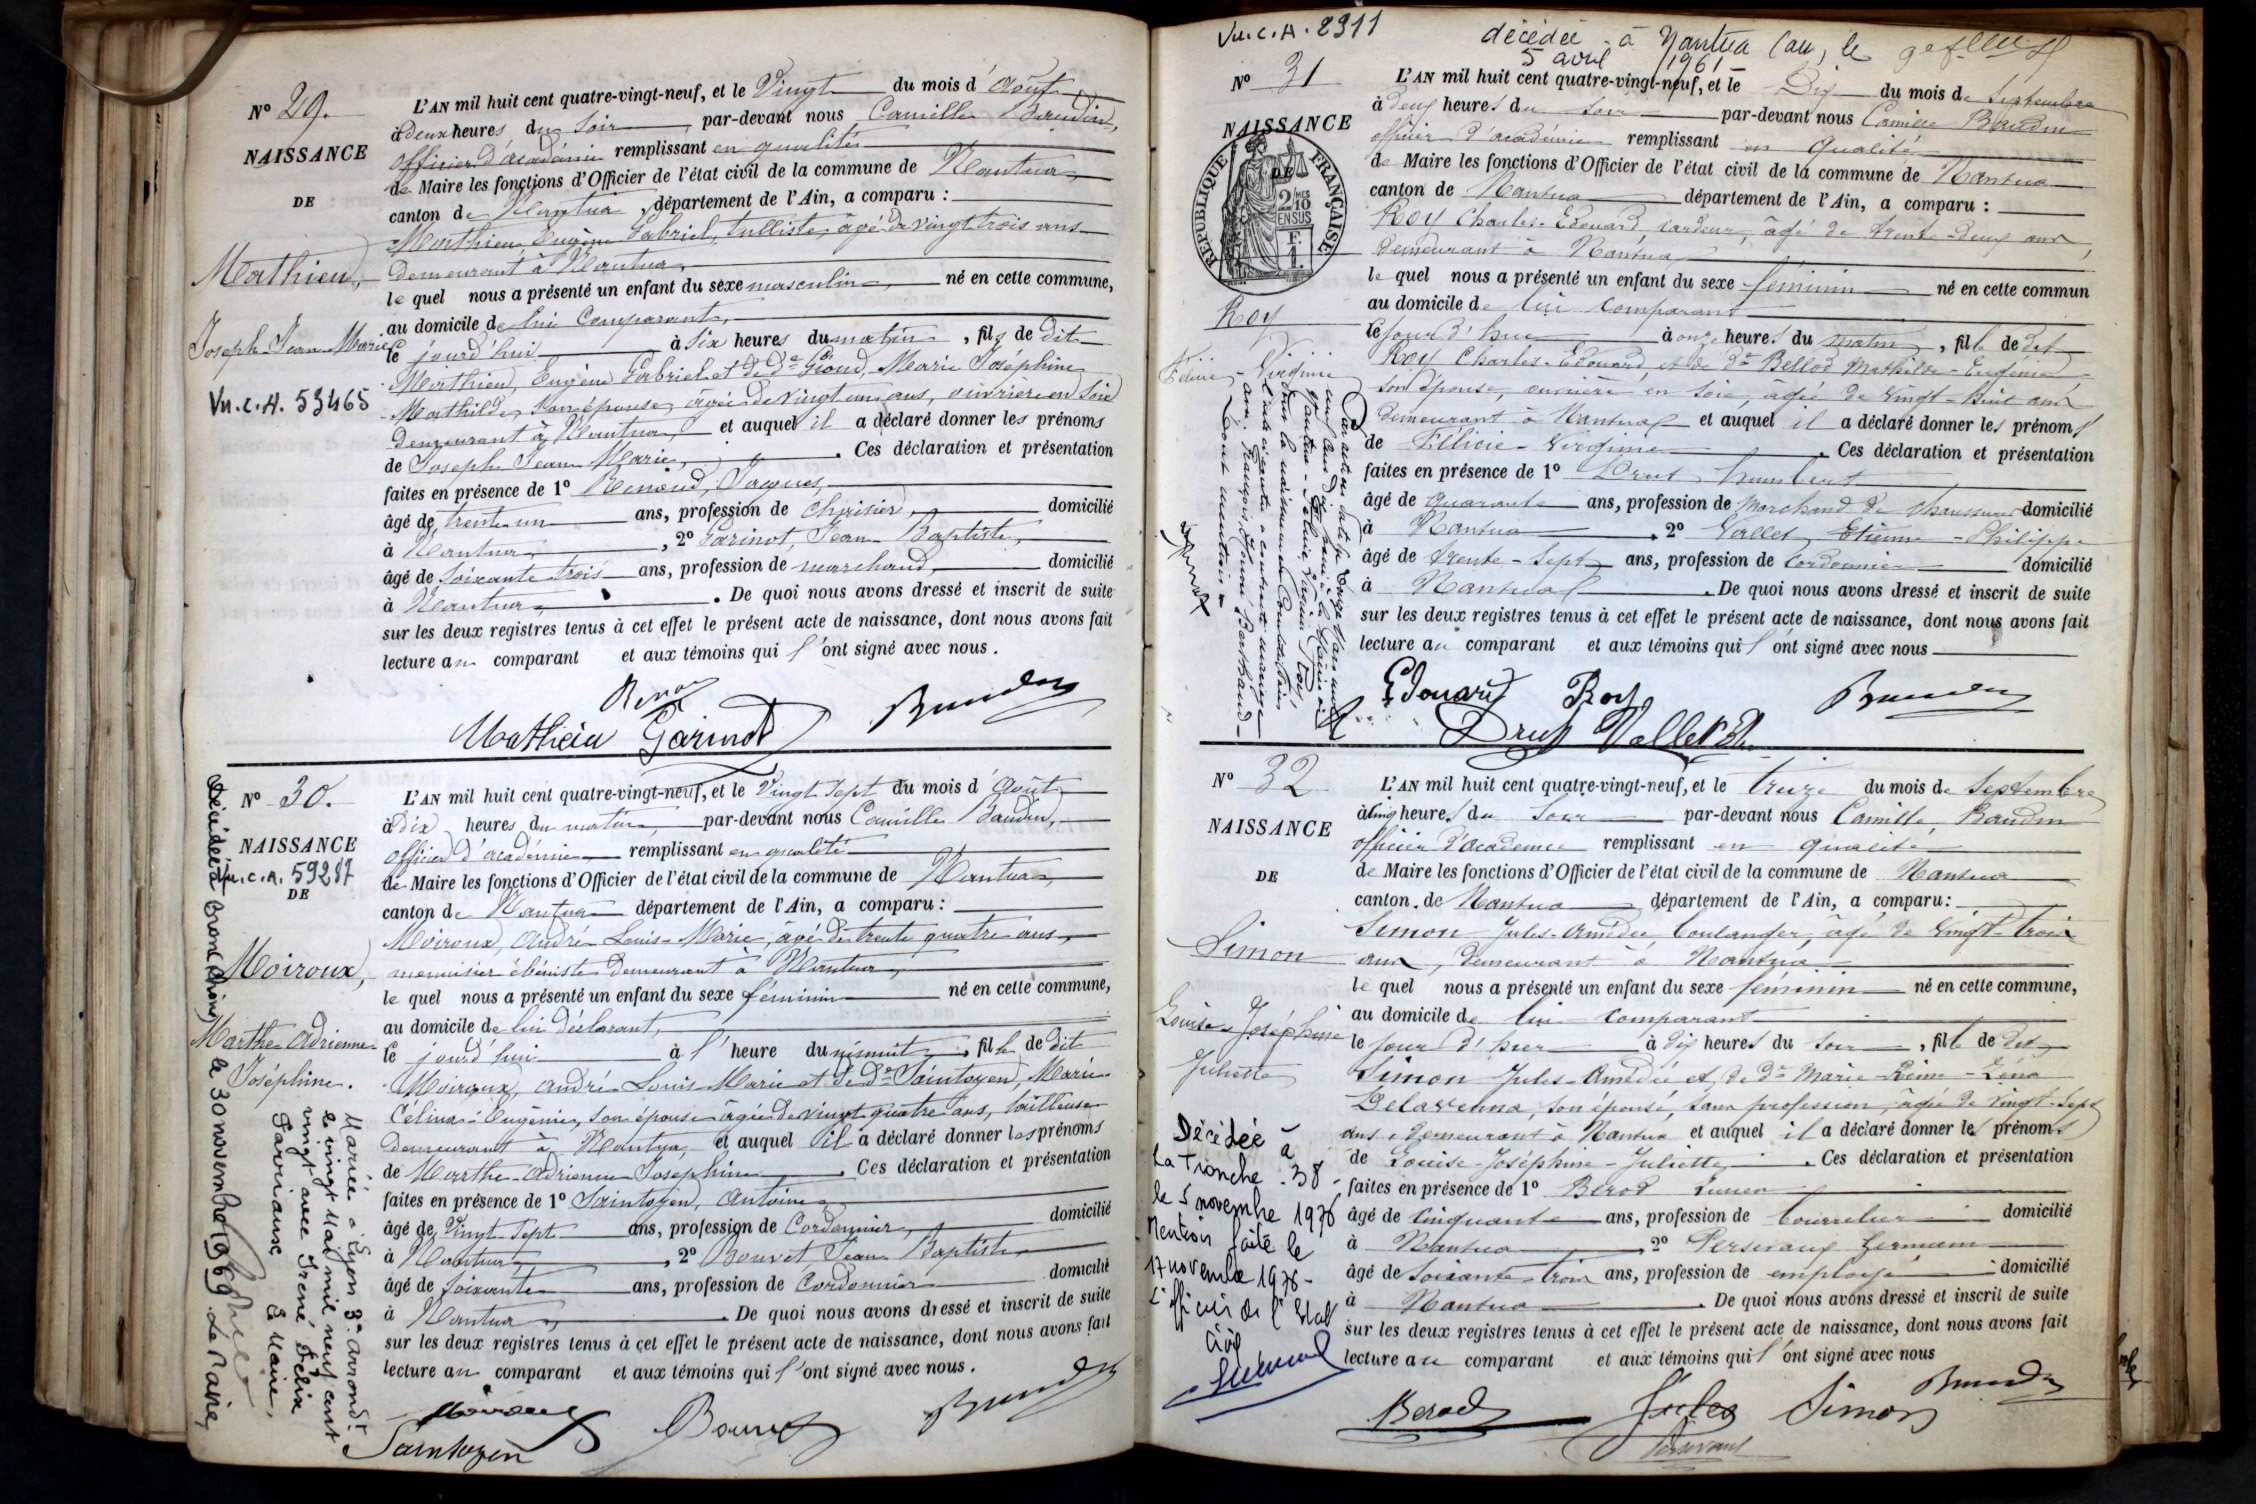 Nº 29.
NAISSANCE
DE
Mathieu,
Joseph Jean Marie
Vu. C. A. 53465
L'AN mil huit cent quatre-vingt-neuf, et le Vingt du mois d'Août
à deux heures du Soir par-devant nous Camille Baudin,
officier d'académie remplissant en qualité
de Maire les fonctions d'Officier de l'état civil de la commune de Nantua,
canton de Nantua, département de l'Ain, a comparu :
Mathieu, Eugène Gabriel, tulliste, agé de vingt trois ans
demeurant à Nantua,
le quel nous a présenté un enfant du sexe masculin, né en cette commune,
au domicile de lui Comparant,
le jourd'hui à six heures du matin, fils de dit
Mathieu, Eugène Gabriel et de de Marie Joséphine
Mathilde, son épouse, agée de vingt un ans, ouvrière en Soie
demeurant à Nantua, et auquel il a déclaré donner les prénoms
de Joseph Jean Marie, . Ces déclaration et présentation
faites en présence de 1º Renoud, Jacques,
âgé de trente un ans, profession de domicilié
à Nantua, 2º Garinot, Jean-Baptiste,
âgé de Soixante trois ans, profession de marchand, domicilié
à Nantua, . De quoi nous avons dressé et inscrit de suite
sur les deux registres tenus à cet effet le présent acte de naissance, dont nous avons fait
lecture au comparant et aux témoins qui l'ont signé avec nous.
Mathieu Garinot
Nº 30.
NAISSANCE
Vu. C. A. 59287
DE
Moiroux,
Marthe Adrienne
Joséphine.
Décédée à Bron (Rhône) le 30 novembre 1969. Le Maire,
Mariée à Lyon 3e arrondt
le vingt Mai mil neuf cent
vingt avec Irené, Félix
Le Maire,
L'AN mil huit cent quatre-vingt-neuf, et le Vingt Sept du mois d'Août
à Dix heures du matin, par-devant nous Camille Baudin,
officier d'académie remplissant en qualité
de Maire les fonctions d'Officier de l'état civil de la commune de Nantua,
canton de Nantua département de l'Ain, a comparu :
Moiroux, André Louis-Marie, agé de trente quatre ans,
menuisier ébéniste demeurant à Nantua,
le quel nous a présenté un enfant du sexe féminin né en cette commune,
au domicile de lui déclarant,
le jourd'hui à l'heure du minuit, fille de dit
Moiroux, André Louis Marie et de De Saintoyen, Marie
Célina-Eugénie, son épouse agée de vingt quatre ans, tailleuse
demeurant à Nantua, et auquel il a déclaré donner les prénoms
de Marthe-Adrienne Joséphine. Ces déclaration et présentation
faites en présence de 1º Saintoyen, Antoine,
âgé de Vingt Sept ans, profession de Cordonnier, domicilié
à Nantua, 2º Bouvet, Jean Baptiste
âgé de Soixante ans, profession de Cordonnier domicilié
à Nantua, . De quoi nous avons dressé et inscrit de suite
sur les deux registres tenus à cet effet le présent acte de naissance, dont nous avons fait
lecture au comparant et aux témoins qui l'ont signé avec nous.
Moiroux Bouvet
Saintoyen
Vu. C. A. 2311
décédée à Nantua (Ain) le
5 avril 1961
Nº 31
NAISSANCE
DE
RÉPUBLIQUE FRANÇAISE
Roy
Virginie
L'AN mil huit cent quatre-vingt-neuf, et le Dix du mois de Septembre
à deux heures du soir par-devant nous Camille Baudin
officier d'académie remplissant en qualité
de Maire les fonctions d'Officier de l'état civil de la commune de Nantua
canton de Nantua département de l'Ain, a comparu :
Roy Charles-Edouard, cardeur, âgé de trente-deux ans,
demeurant à Nantua
le quel nous a présenté un enfant du sexe féminin né en cette commun
au domicile de lui comparant
le jour d'hui à onze heures du matin, fille de dit
Roy Charles-Edouard et de De Bellod Mathilde-Eugénie
son épouse, ouvrière en soie, âgée de vingt-huit ans
demeurant à Nantua et auquel il a déclaré donner les prénoms
de Félicie-Virginie. Ces déclaration et présentation
faites en présence de 1º Drut Humbert
âgé de quarante ans, profession de marchand de chaussures domicilié
à Nantua. 2º Vallet Etienne-Philippe
âgé de trente-sept ans, profession de Cordonnier domicilié
à Nantua. De quoi nous avons dressé et inscrit de suite
sur les deux registres tenus à cet effet le présent acte de naissance, dont nous avons fait
lecture au comparant et aux témoins qui l'ont signé avec nous
Edouard Roy
Drut Vallet
Nº 32
NAISSANCE
DE
Simon
Louise-Joséphine
Juliette
Décédée à
La Tronche - 38 -
le 5 novembre 1976
Mention faite le
17 novembre 1976 -
L'officier de l'Etat
Civil
L'AN mil huit cent quatre-vingt-neuf, et le treize du mois de Septembre
à cinq heures du Soir par-devant nous Camille Baudin
officier d'académie remplissant en qualité
de Maire les fonctions d'Officier de l'état civil de la commune de Nantua
canton de Nantua département de l'Ain, a comparu :
Simon Jules-Amédée, boulanger, âgé de vingt-trois
ans, demeurant à Nantua
le quel nous a présenté un enfant du sexe féminin né en cette commune,
au domicile de lui comparant
le jour d'hier à dix heures du soir, fille de dit
Simon Jules-Amédée et de De Marie-Reine-Léna
Delavenna, son épouse, sans profession, âgée de vingt-sept
ans, demeurant à Nantua et auquel il a déclaré donner les prénoms
de Louise-Joséphine-Juliette. Ces déclaration et présentation
faites en présence de 1º Berod
âgé de cinquante ans, profession de bourrelier domicilié
à Nantua 2º Germain
âgé de soixante-trois ans, profession de employé domicilié
à Nantua. De quoi nous avons dressé et inscrit de suite
sur les deux registres tenus à cet effet le présent acte de naissance, dont nous avons fait
lecture au comparant et aux témoins qui l'ont signé avec nous
Berod Jules Simon